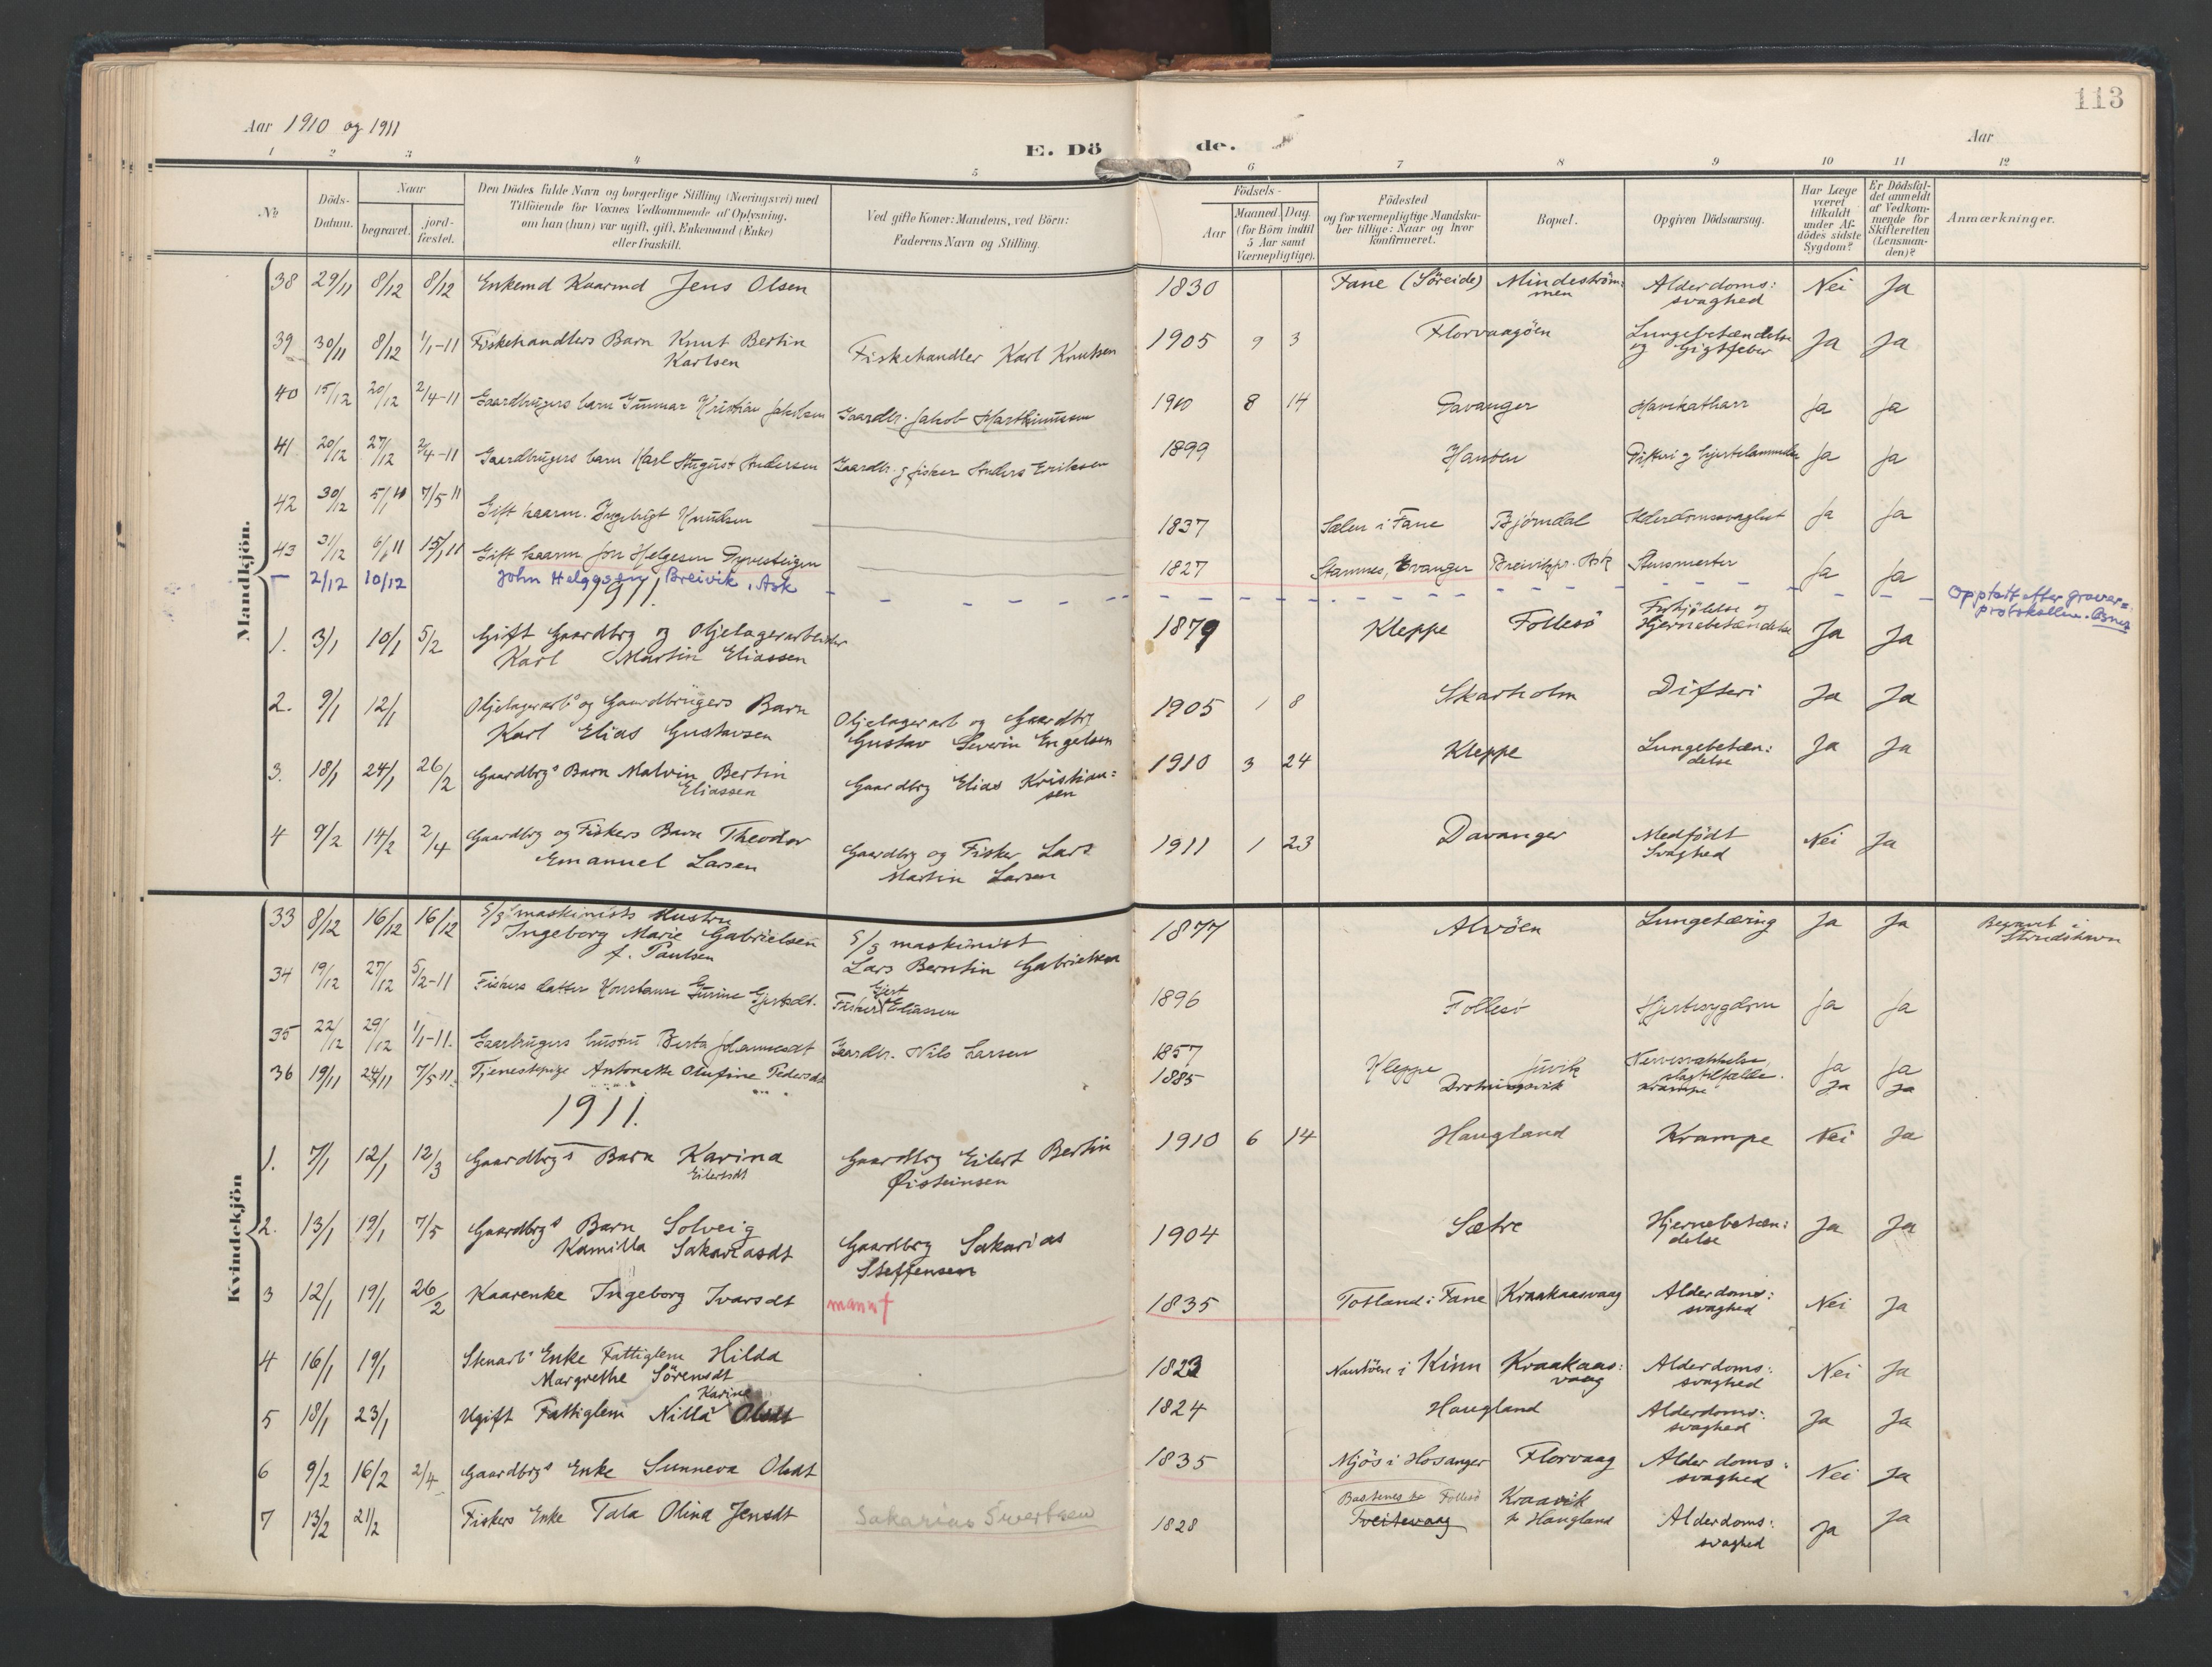 113
Aar 1910 og 1911
E. Dö
de.
Aar
1 2 3 4 5 6 7 8 9 10 11 12
№
Döds-
Datum.
Naar
begravet.
jord-
fæstet.
Den Dödes fulde Navn og borgerlige Stilling (Næringsvei) med
Tilföiende for Voxnes Vedkommende af Oplysning,
om han (hun) var ugift, gift, Enkemand (Enke)
eller fraskilt.
Ved gifte Koner: Mandens, ved Börn:
Faderens Navn og Stilling.
Födsels-
Aar
Maaned. Dag.
(for Börn indtil
5 Aar samt
Værnepligtige).
Födested
og for værnepligtige Mandska-
ber tillige: Naar og hvor
konfirmeret.
Bopæl.
Opgiven Dödsaarsag.
Har Læge
været
tilkaldt
under Af-
dödes sidste
Sygdom?
Er Dödsfal-
det anmeldt
af Vedkom-
mende for
Skifteretten
(Lensman-
den)?
Anmærkninger.
Mandkjön.
38 29/11 8/12 8/12 Enkemd Kaarmd Jens Olsen 1830 Fane (Söreide) Mindeström:
men Alderdoms:
svaghed Nei Ja
39 30/11 8/12 1/1-11 Fiskehandlers Barn Knut Bertin
Karlsen Fiskehandler Karl Knutsen 1905 9 3 Florvaagöen Lungebetændelse
og Gigtfeber Ja Ja
40 15/12 20/12 2/4-11 Gaardbrugers barn Gunnar Kristian Jakobsen Gaardbr. Jakob Martinussen 1900 8 14 Davanger Mavekatharr Ja Ja
41 20/12 27/12 2/4-11 Gaardbrugers barn Karl August Andersen Gaardbr. og fisker Anders Eriksen 1899 Hanøen Difteri og hjertelammelse Ja Ja
42 30/12 5/1 11 7/5 11 Gift kaarm. Ingebrigt Knudsen 1837 Sælen i Fane Björndal Alderdomssvaghet Ja Ja
43 31/12 6/1 11 15/1 11 Gift kaarm Jon Helgesen Dyvesteigen 1827 Stamnes, Evanger Breivik pr. Ask Ja Ja
— 2/12 10/12 John Helgesen, Breivik, Ask
Opptatt efter graver=
protokollen.
1911.
1. 3/1 10/1 5/2 Gift Gaardbrg og Oljelagerarbeider
Karl Martin Eliassen 1879 Kleppe Follesö Forkjölelse og
Hjernebetændelse Ja Ja
2. 9/1 12/1 Oljelagerarbs og Gaardbrugers Barn
Karl Elias Gustavsen Oljelagerarb og Gaardbrg
Gustav Severin Engelsen 1905 1 8 Skarholm Difteri Ja Ja
3. 18/1 24/1 26/2 Gaardbrgs Barn Malvin Bertin
Eliassen Gaardbrg Elias Kristian:
sen 1910 3 24 Kleppe Lungebetæn:
delse Ja Ja
4 9/2 14/2 2/4 Gaardbrg og Fiskers Barn Theodor
Emanuel Larsen Gaardbrg og Fisker Lars
Martin Larsen 1911 1 23 Davanger Medfödt
Svaghed Nei Ja
Kvindekjön
33 8/12 16/12 16/12 S/S maskinists Hustru
Ingeborg Marie Gabrielsen
f. Paulsen S/S maskinist
Lars Berntin Gabrielsen 1877 Alvöen Lungetæring Ja Ja Begravet i
Strudshavn
34 19/12 27/12 5/2-11 Fiskers datter Konstanse Gurine Gjertsdt. Fisker Gjert
Eliassen 1896 Follesö Hjertesygdom Ja Ja
35 22/12 29/12 1/1-11. Gaarbrugers hustru Berta Johannesdt Gaardbr. Nils Larsen 1857 Kleppe Juvik Nervesvækkelse,
slagtilfælde. Ja Ja
36 19/11 24/11 7/5 11. Tjenestepige Antonette Olufine Pedersdt 1885 Drotningsvik Krampe Ja Ja
1911.
1. 7/1 12/1 12/3 Gaardbrgs Barn Karina
Eilertsdt Gaardbrg Eilert Bertin
Øisteinsen 1910 6 14 Haugland Krampe Nei Ja
2. 13/1 19/1 7/5 Gaardbrgs Barn Solveig
Kamilla Sakariasdt Gaardbrg Sakarias
Steffensen 1904 Sætre Hjernebetæn:
delse Ja Ja
3 12/1 19/1 26/2 Kaarenke Ingeborg Ivarsdt mann † 1835 Totland i Fane Kraakaasvaag Alderdoms:
svaghed Nei Ja
4 16/1 19/1 Stuarbs Enke Fattiglem Hilda
Margrethe Sörensdt 1823 i Kinn Kraakaas:
vaag Alderdoms:
svaghed Nei Ja
5 18/1 23/1 Ugift Fattiglem Nilla Karina Olsdt 1824 Haugland Alderdoms:
svaghed Ja Ja
6 9/2 16/2 2/4 Gaardbrgs Enke Sunneva Olsdt 1835 Mjös i Hosanger Florvaag Alderdoms:
svaghed Nei Ja
7 13/2 21/2 Fiskers Enke Tala Olina Jensdt Sakarias Sivertsen 1828 Bastenes pr Follesö
Tveitevaag Kraavik
pr Haugland Alderdoms:
svaghed Ja Ja